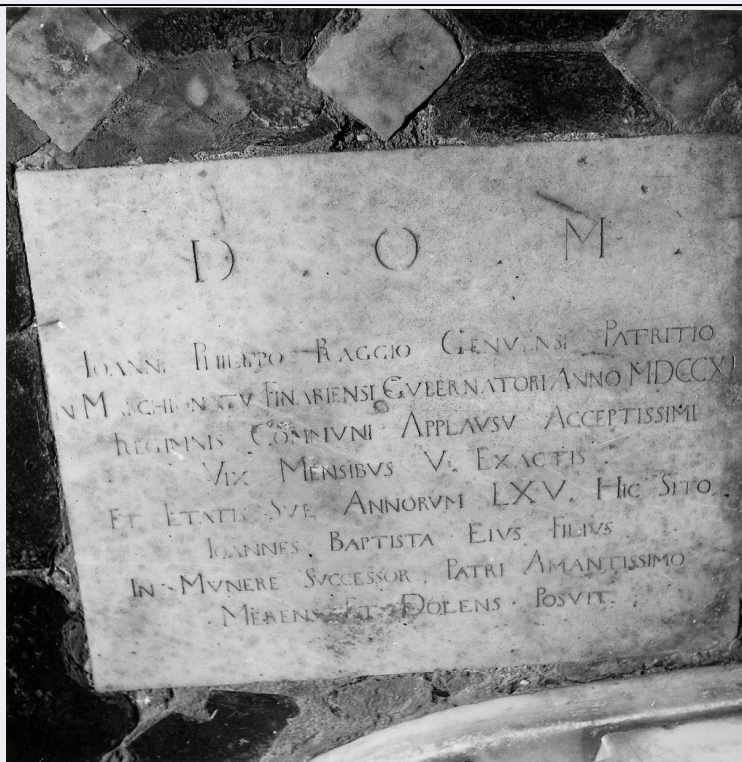 D O M
IOANNI PHILIPPO RAGGIO GENVENSI PATRITIO
IN MARCHIONATV FINARIENSI GVBERNATORI ANNO MDCCXI
REGIMINIS COMMVNI APPLAVSV ACCEPTISSIMI
VIX MENSIBVS V. EXACTIS.
ET ETATIS SVE ANNORVM LXV. HIC SITO.
IOANNES. BAPTISTA EIVS FILIVS
IN MVNERE SVCCESSOR. PATRI AMANTISSIMO
MERENS ET DOLENS POSVIT.